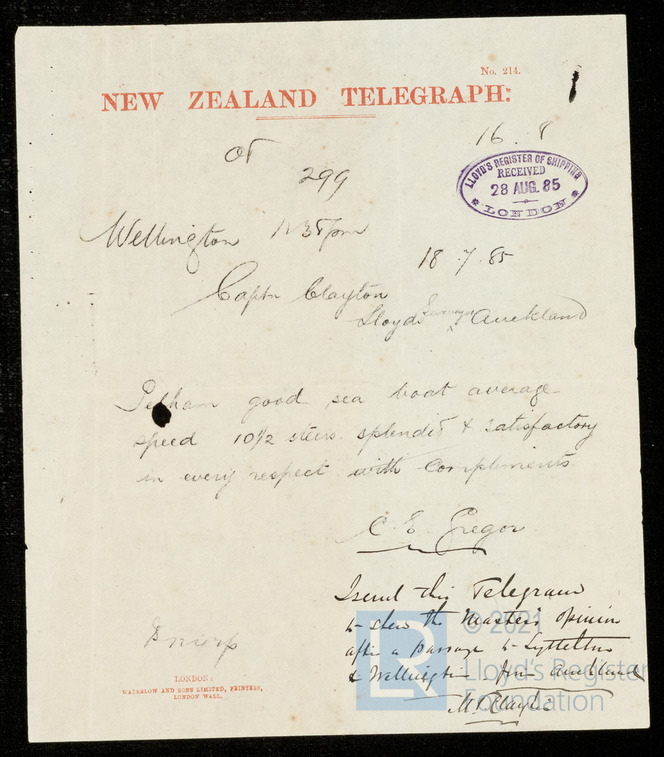 No. 214.
NEW ZEALAND TELEGRAPH:
16 . 8
OT
299
LLOYD'S REGISTER OF SHIPPING
RECEIVED
28 AUG. 85
LONDON
Wellington
18 . 7 . 85
Captn Clayton
Lloyds Surveyor Auckland
good sea boat average
speed 10½ steers splendid & satisfactory
in every respect with compliments
C. E. Gregor
I send this Telegram
to shew the Master's opinion
after a passage to Lyttelton
& Wellington from Auckland
M Clayton
LONDON:
WATERLOW AND SONS LIMITED, PRINTERS,
LONDON WALL.
LR
© 2021
Lloyd's Register
Foundation